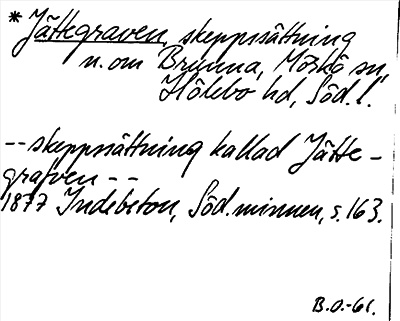 * Jättegraven, skeppssättning
n. om Brunna, Mörkö sn,
Hölebo hd, Söd.l.
-- skeppssättning kallad Jätte-
grafven --
1877 Indebetou, Söd.minnen, s. 163.
B.O.-61.